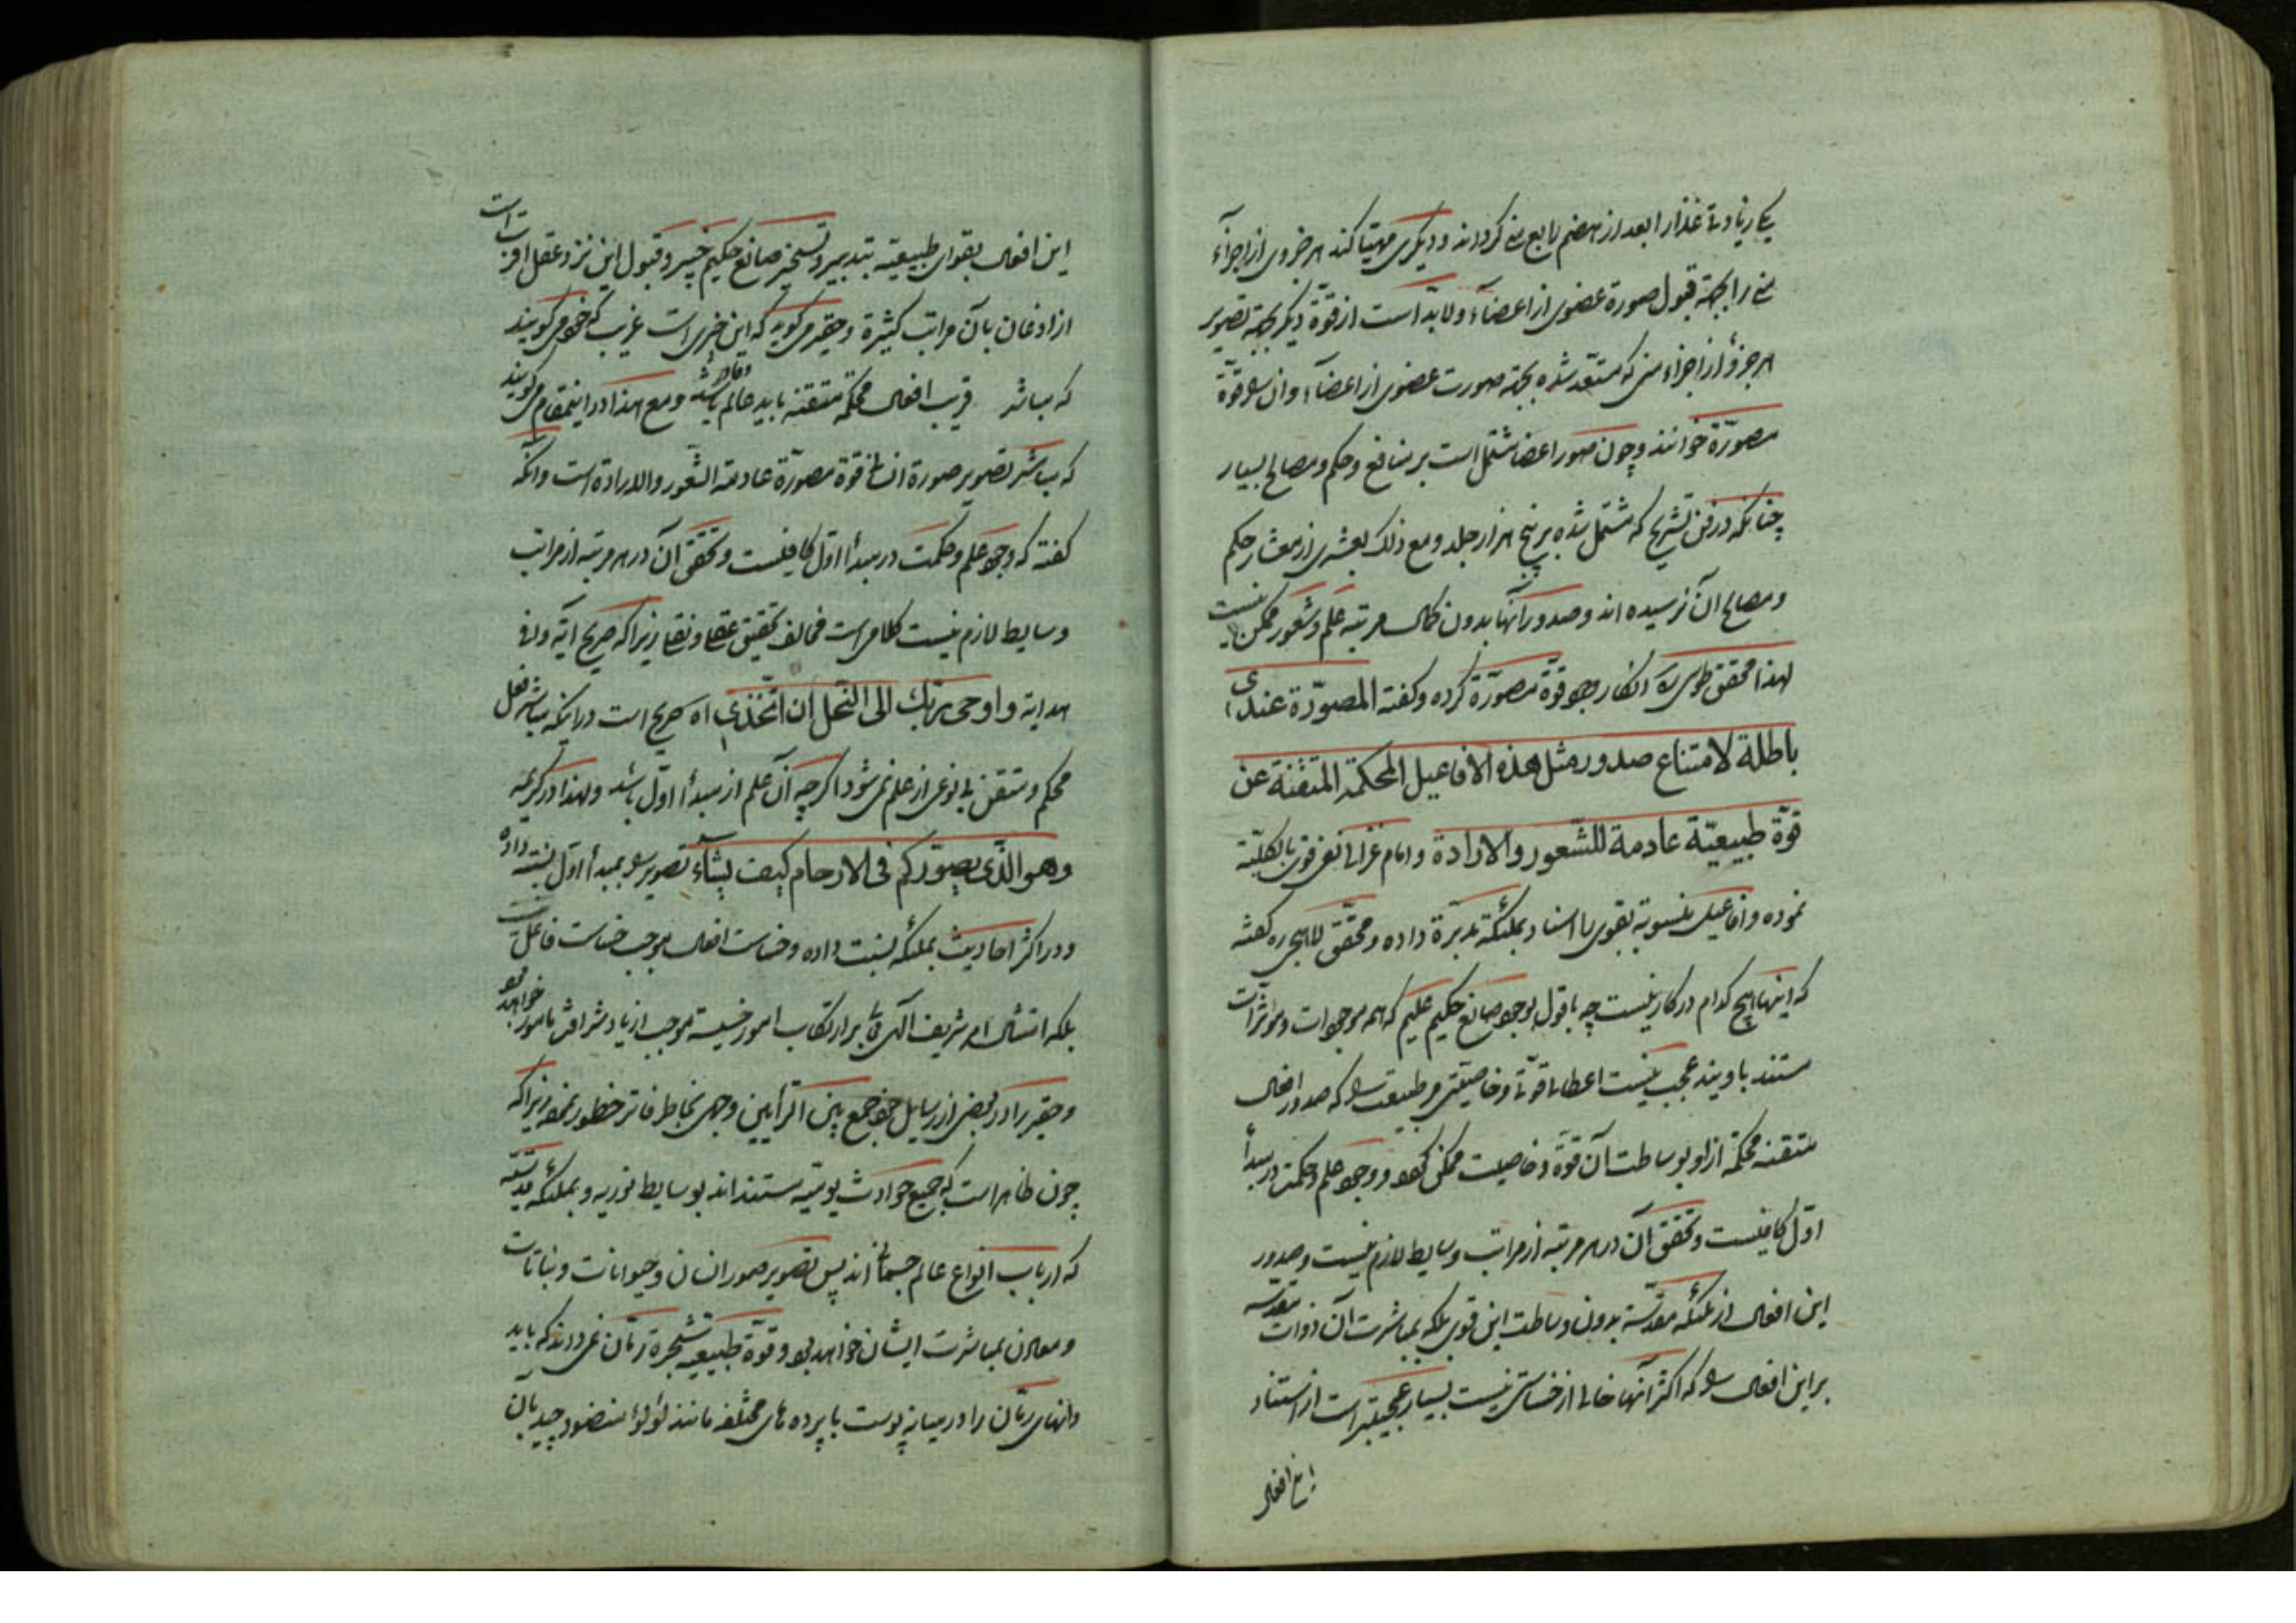 یکی زیادتی غذا را بعد از هضم رابع منی گرداند و دیگری مهیا کند هر جزوی از اجزاء
منی را بجهة قبول صورة عضوی از اعضاء و لابد است از قوة دیگر بجهة تصویر
هر جزؤ از اجزاء منی که مستعد شده بجهة صورت عضوی از اعضاء و آن را قوة
مصورة خوانند و چون صور اعضا مشتمل است بر منافع و حکم و مصالح بسیار
چنانکه در فن تشریح که مشتمل شده بر پنج هزار جلد و مع ذلک بعشری از معشار حکم
و مصالح آن نرسیده اند و صدور آنها بدون کمال مرتبه علم و شعور ممکن نیست
لهذا محقق طوسی ره انکار وجود قوة مصورة کرده و گفته المصورة عندی
باطلة لامتناع صدور مثل هذه الافاعیل المحکمة المتقنة عن
قوة طبیعیة عادمة للشعور والارادة و امام غزالی نفی قوی بالکلیة
نموده و افاعیل منسوبة بقوی را اسناد بملئکة مدبرة داده و محقق لاهیجی ره گفته
که اینها هیچ کدام در کار نیست چه با قول بوجود صانع حکیم علیم که همه موجودات و مؤثرات
مستند باویند عجب نیست اعطاء قوتی و خاصیتی مر طبیعت را که صدور افعال
متقنه محکمة از او بوساطت آن قوة و خاصیت ممکن بود و وجود علم و حکمت در مبدأ
اول کافیست و تحقق آن در هر مرتبه از مراتب وسایط لازم نیست و صدور
این افعال از ملئکه مقدسة بدون وساطت این قوی بلکه بمباشرت آن ذوات مقدسه
بر این افعال را که اکثر آنها خالی از خساستی نیست بسیار عجیبتر است از استناد
این افعال
این افعال بقوای طبیعیة بتدبیر و تسخیر صانع حکیم خبیر و قبول این نزد عقل اقرب است
از اذعان بآن مراتب کثیرة و حقیر می گوید که این چیزی است غریب که خود می گویند
که مباشر قریب افعال محکمة متقنه باید عالم و قادر باشد و مع هذا در اینمقام می گویند
که مباشر تصویر صورة انسانی قوة مصورة عادمة الشعور والارادة است و آنکه
گفته که وجود علم و حکمت در مبدأ اول کافیست و تحقق آن در هر مرتبه از مراتب
وسایط لازم نیست کلامی است مخالف تحقیق عقلی و نقلی زیرا که صریح آیه وافی
هدایه و اوحی ربك الی النحل ان اتخذی اه صریح است در اینکه مباشر فعل
محکم و متقن بی نوعی از علم نمی شود اگر چه آن علم از مبدأ اول باشد و لهذا در کریمه
وهو الذی یصورکم فی الارحام کیف یشاء تصویر را بمبدأ اول نسبت داده
و در اکثر احادیث بملئکه نسبت داده و خساست افعال موجب خساست فاعل نیست
بلکه امتثال امر شریف الهی بر ارتکاب امور خسیسه موجب ازدیاد شرافت مأمور خواهد بود
و حقیر را در بعضی از رسایل خود جمع بین الرأیین وجهی بخاطر فاتر خطور نموده زیرا که
چون ظاهر است که جمیع حوادث یومیه مستند اند بوسایط نوریه و بملئکه قدسیه
که ارباب انواع عالم جسمانی اند پس تصویر صور انسان و حیوانات و نباتات
و معادن بمباشرت ایشان خواهد بود و قوة طبیعیه شجرة رمان نمی داند که باید
دانهای رمان را در میانه پوست با پرده های مختلفه مانند لؤلؤ منضود چید بآن